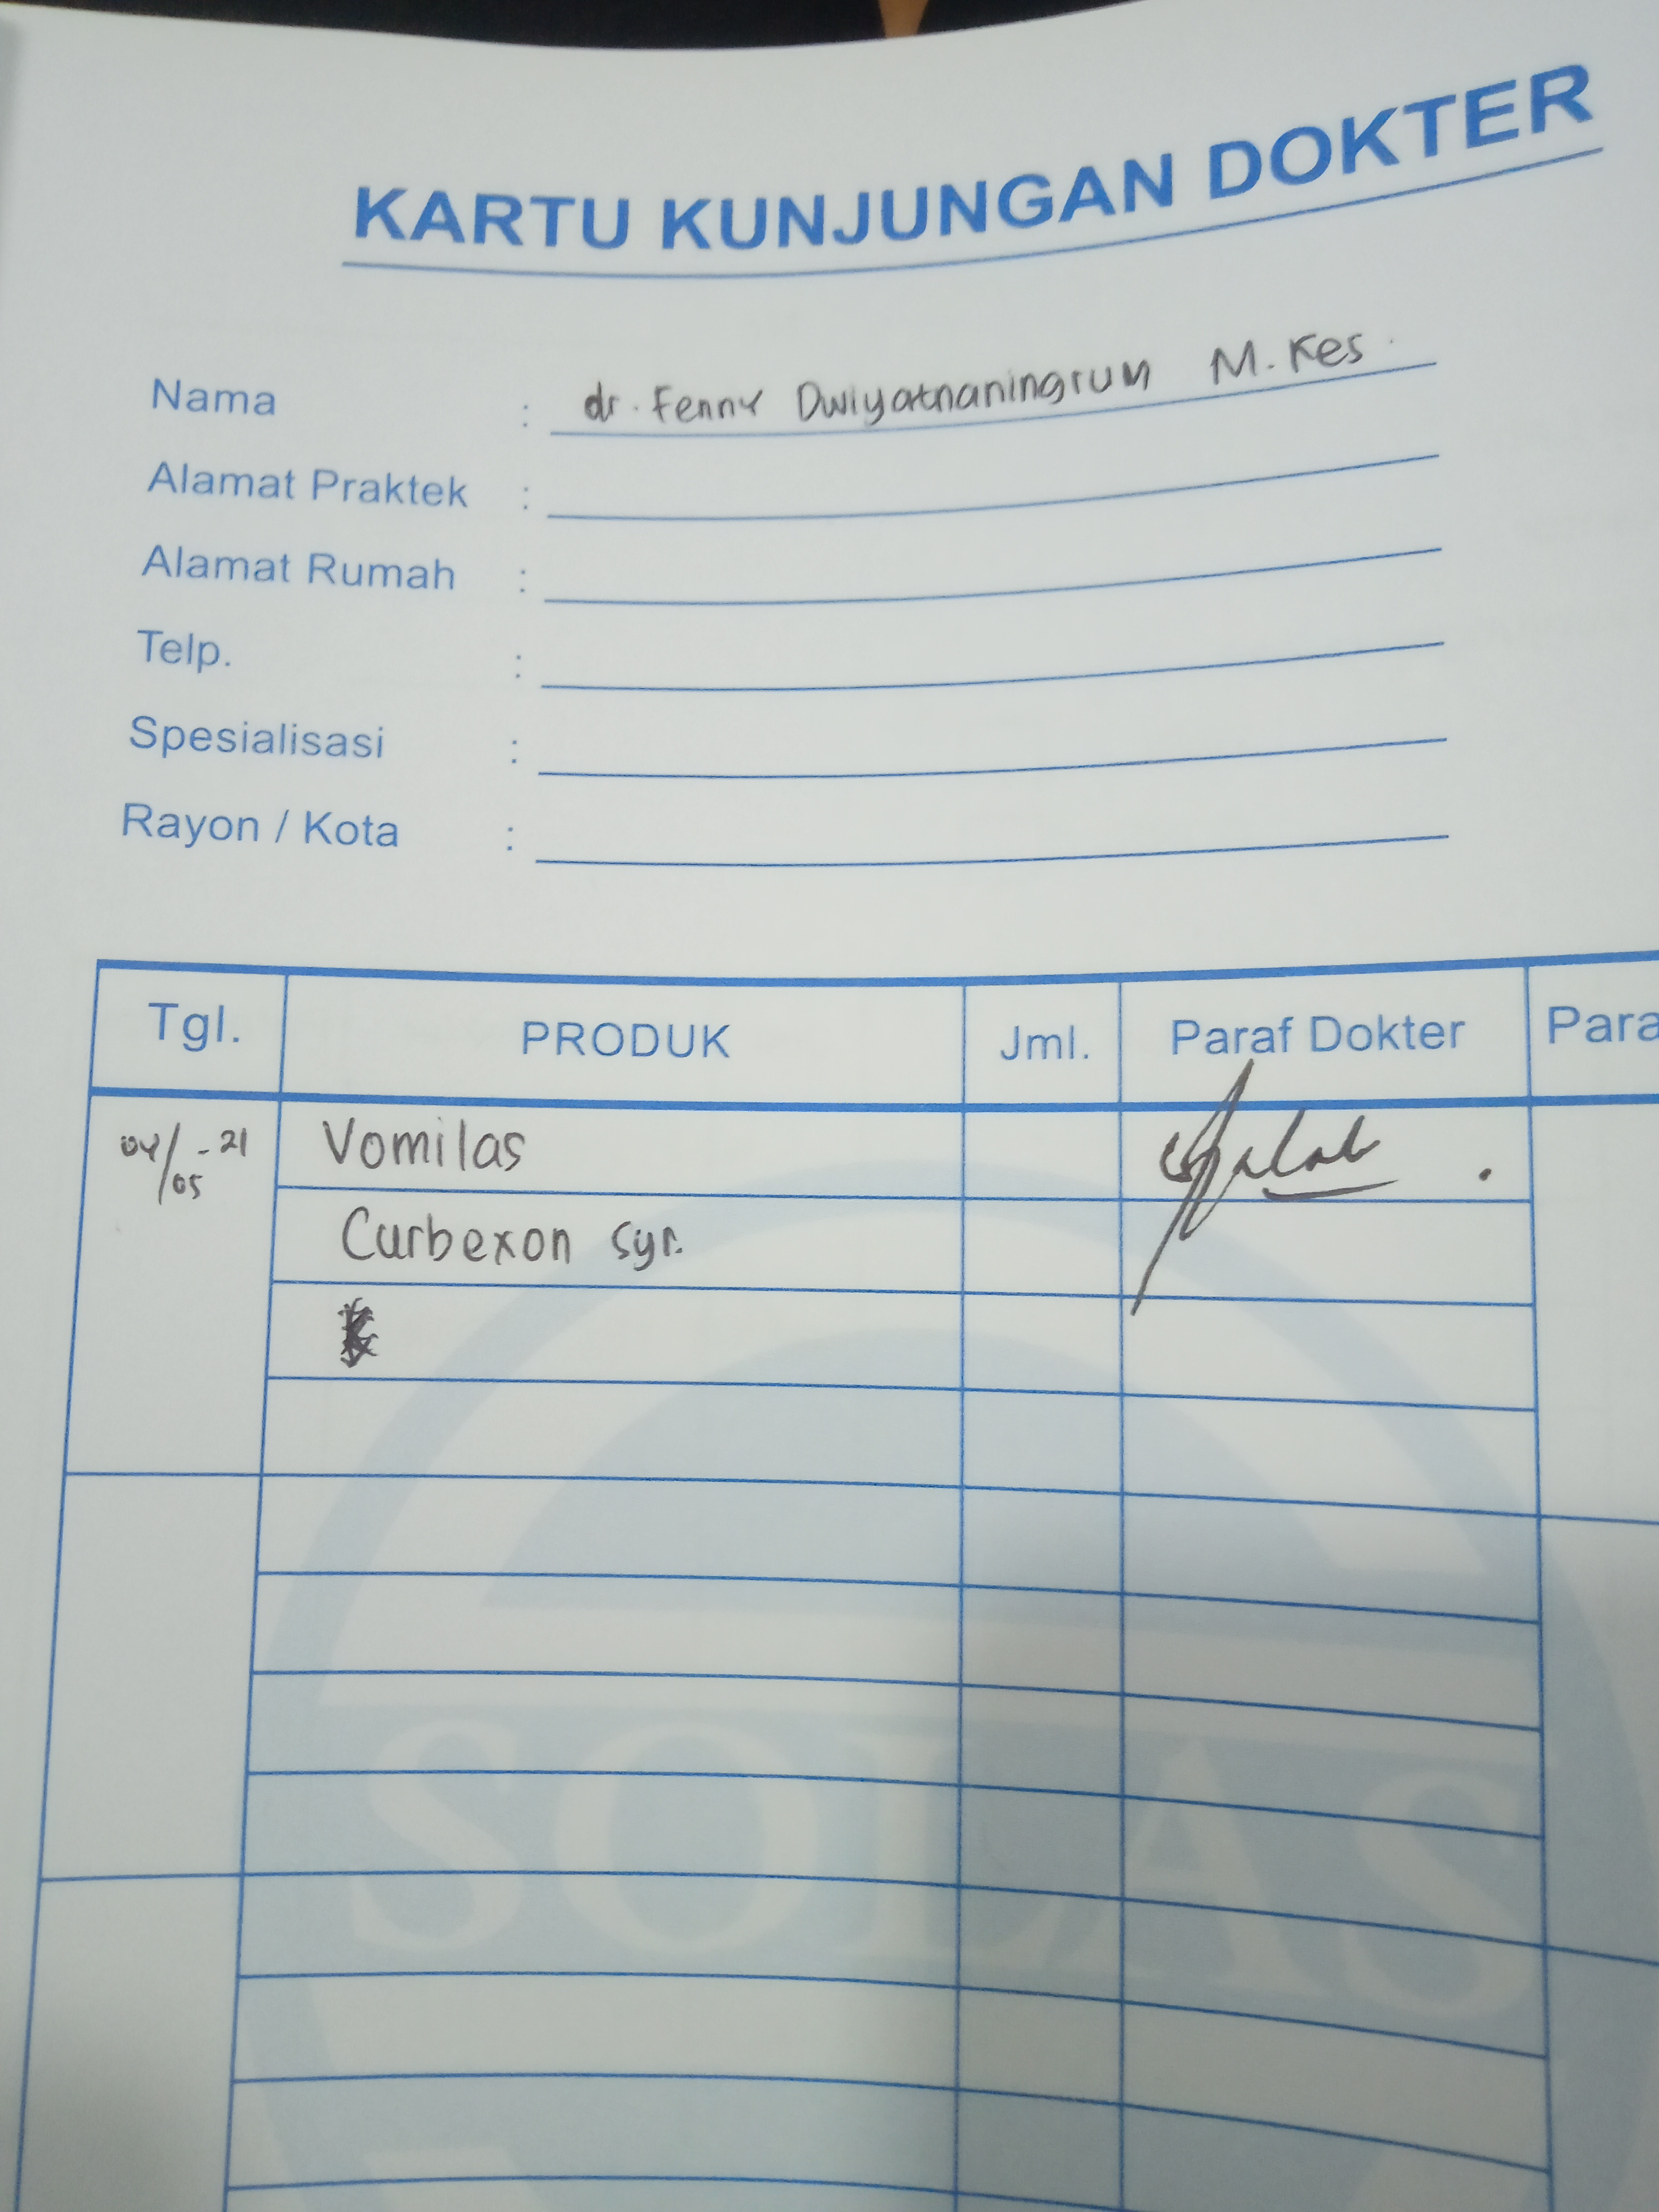 KARTU KUNJUNGAN DOKTER
Nama : dr. Fenny Dwiyatnaningrum M. Kes.
Alamat Praktek :
Alamat Rumah :
Telp. :
Spesialisasi :
Rayon / Kota :
Tgl. PRODUK Jml. Paraf Dokter Para
04/05-21 Vomilas
Curbexon syr.
SOLAS